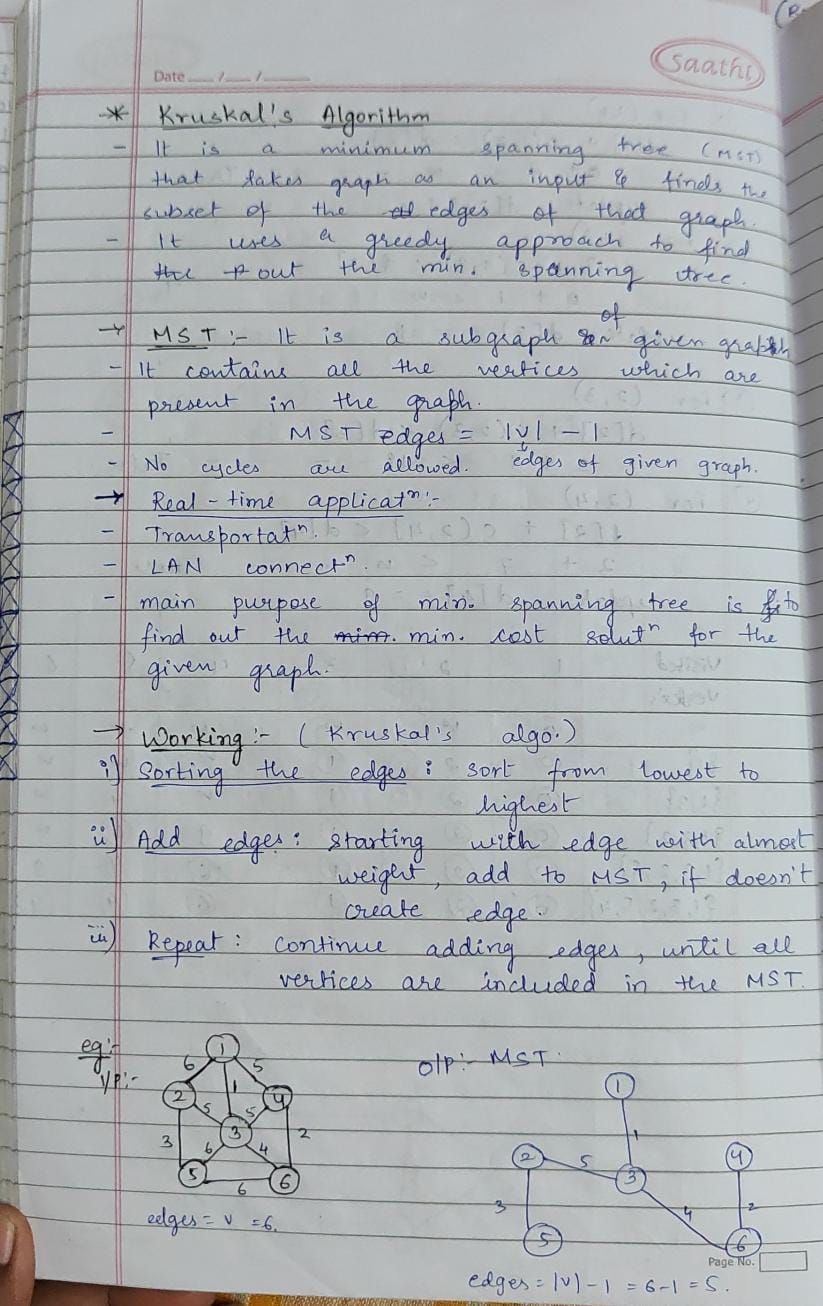 saathi
Date
* Kruskal's Algorithm
- It is a minimum spanning tree (MST)
that takes graph as an input & finds the
subset of the edges of that graph.
- It uses a greedy approach to find
out the min. spanning tree.
→ MST :- It is a subgraph of given graph
- It contains all the vertices which are
present in the graph.
- MST edges = |v| - 1
- No cycles are allowed. edges of given graph.
→ Real-time applicatⁿ :-
- Transportatⁿ.
- LAN connectⁿ.
- main purpose of min. spanning tree is to
find out the min. min. cost solutⁿ for the
given graph.
→ Working :- (Kruskal's algo.)
i) Sorting the edges : sort from lowest to
highest
ii) Add edges : starting with edge with almost
weight, add to MST, if doesn't
create edge.
iii) Repeat : continue adding edges, until all
vertices are included in the MST.
eg :-
I/P :-
1
6 5
2 1 4
5 5
3
3 2
6 4
5 6
6
edges = v = 6.
O/P :- MST
1
1
2 5 3 4
3 4 2
5 6
Page No.
edges = |v| - 1 = 6 - 1 = 5.